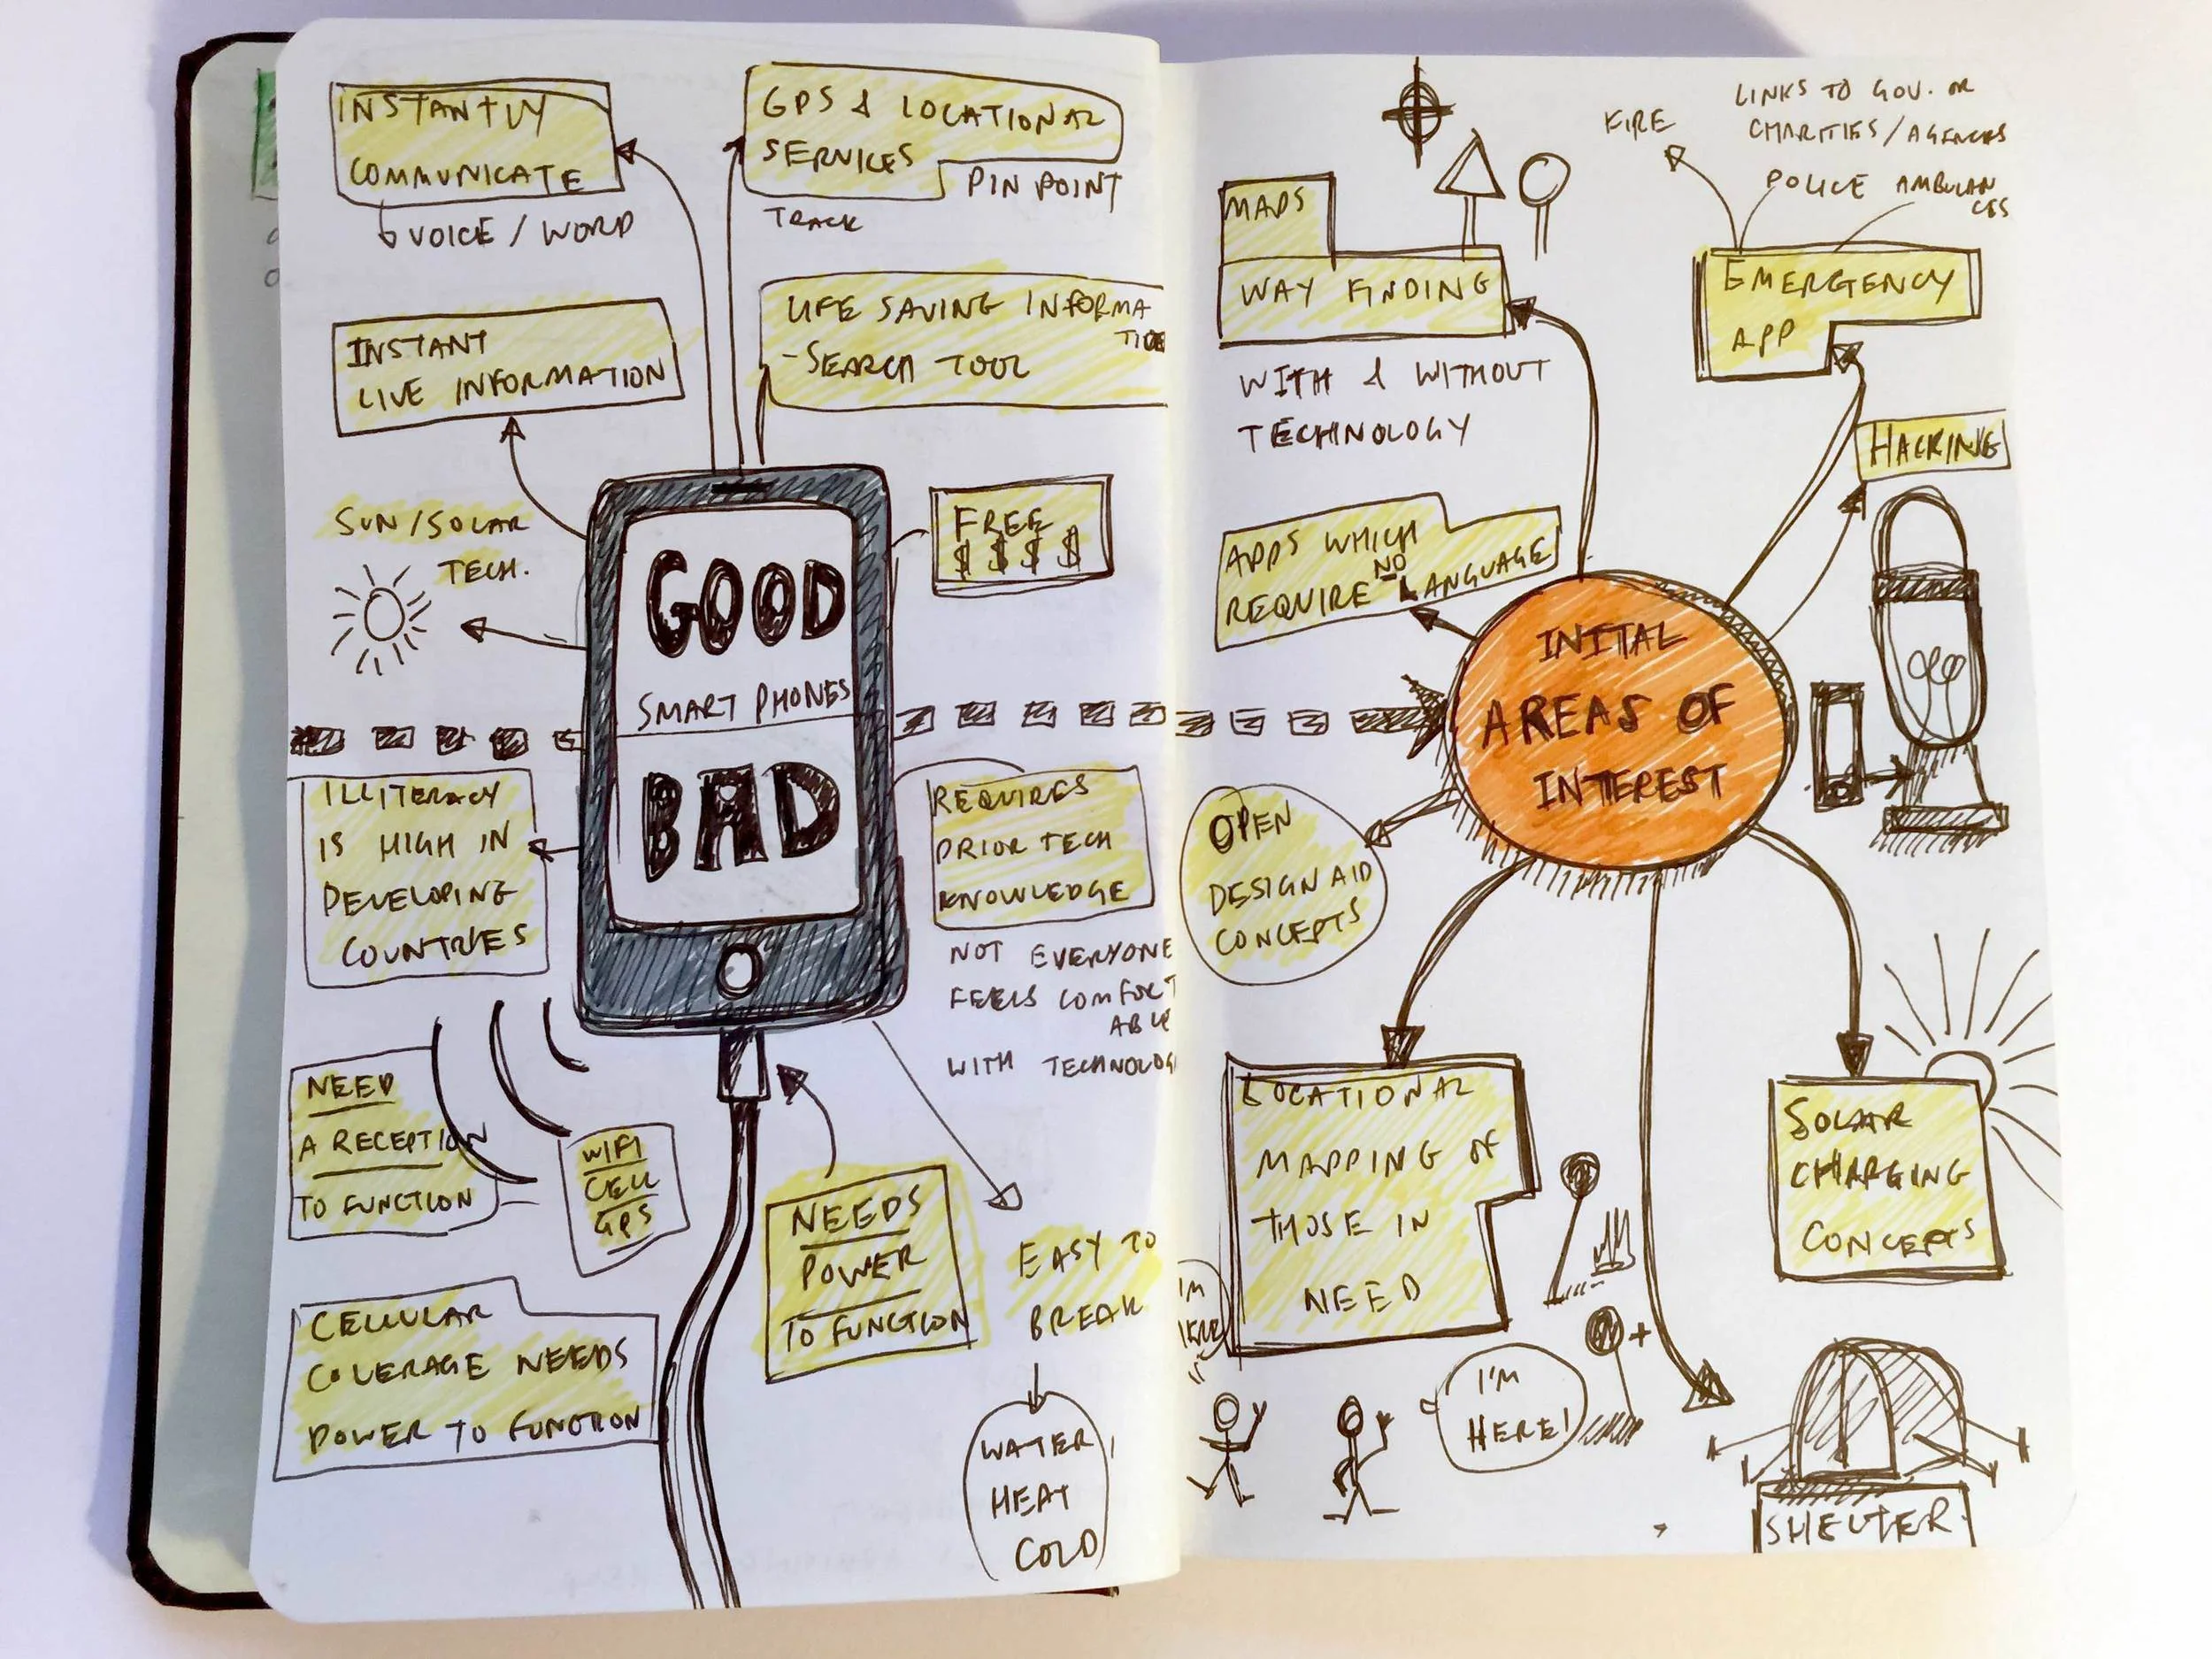 INSTANTLY
COMMUNICATE
VOICE / WORD
GPS & LOCATIONAL
SERVICES
PIN POINT
TRACK
INSTANT
LIVE INFORMATION
LIFE SAVING INFORMA
TION
-SEARCH TOOL
SUN/SOLAR
TECH.
FREE
$ $ $ $
GOOD
SMART PHONES
BAD
ILLITERACY
IS HIGH IN
DEVELOPING
COUNTRIES
REQUIRES
PRIOR TECH
KNOWLEDGE
NOT EVERYONE
FEELS COMFORT
ABLE
WITH TECHNOLOG
NEED
A RECEPTION
TO FUNCTION
WIFI
CELL
GPS
NEEDS
POWER
TO FUNCTION
EASY TO
BREAK
CELLULAR
COVERAGE NEEDS
POWER TO FUNCTION
WATER,
HEAT
COLD
MAPS
WAY FINDING
WITH & WITHOUT
TECHNOLOGY
FIRE
LINKS TO GOV. OR
CHARITIES/AGENCES
POLICE AMBULAN
CES
EMERGENCY
APP
HACKING
APPS WHICH
REQUIRE NO LANGUAGE
INITAL
AREAS OF
INTEREST
OPEN
DESIGN AID
CONCEPTS
LOCATIONAL
MAPPING OF
THOSE IN
NEED
SOLAR
CHARGING
CONCEPTS
I'M
HERE
I'M
HERE!
SHELTER